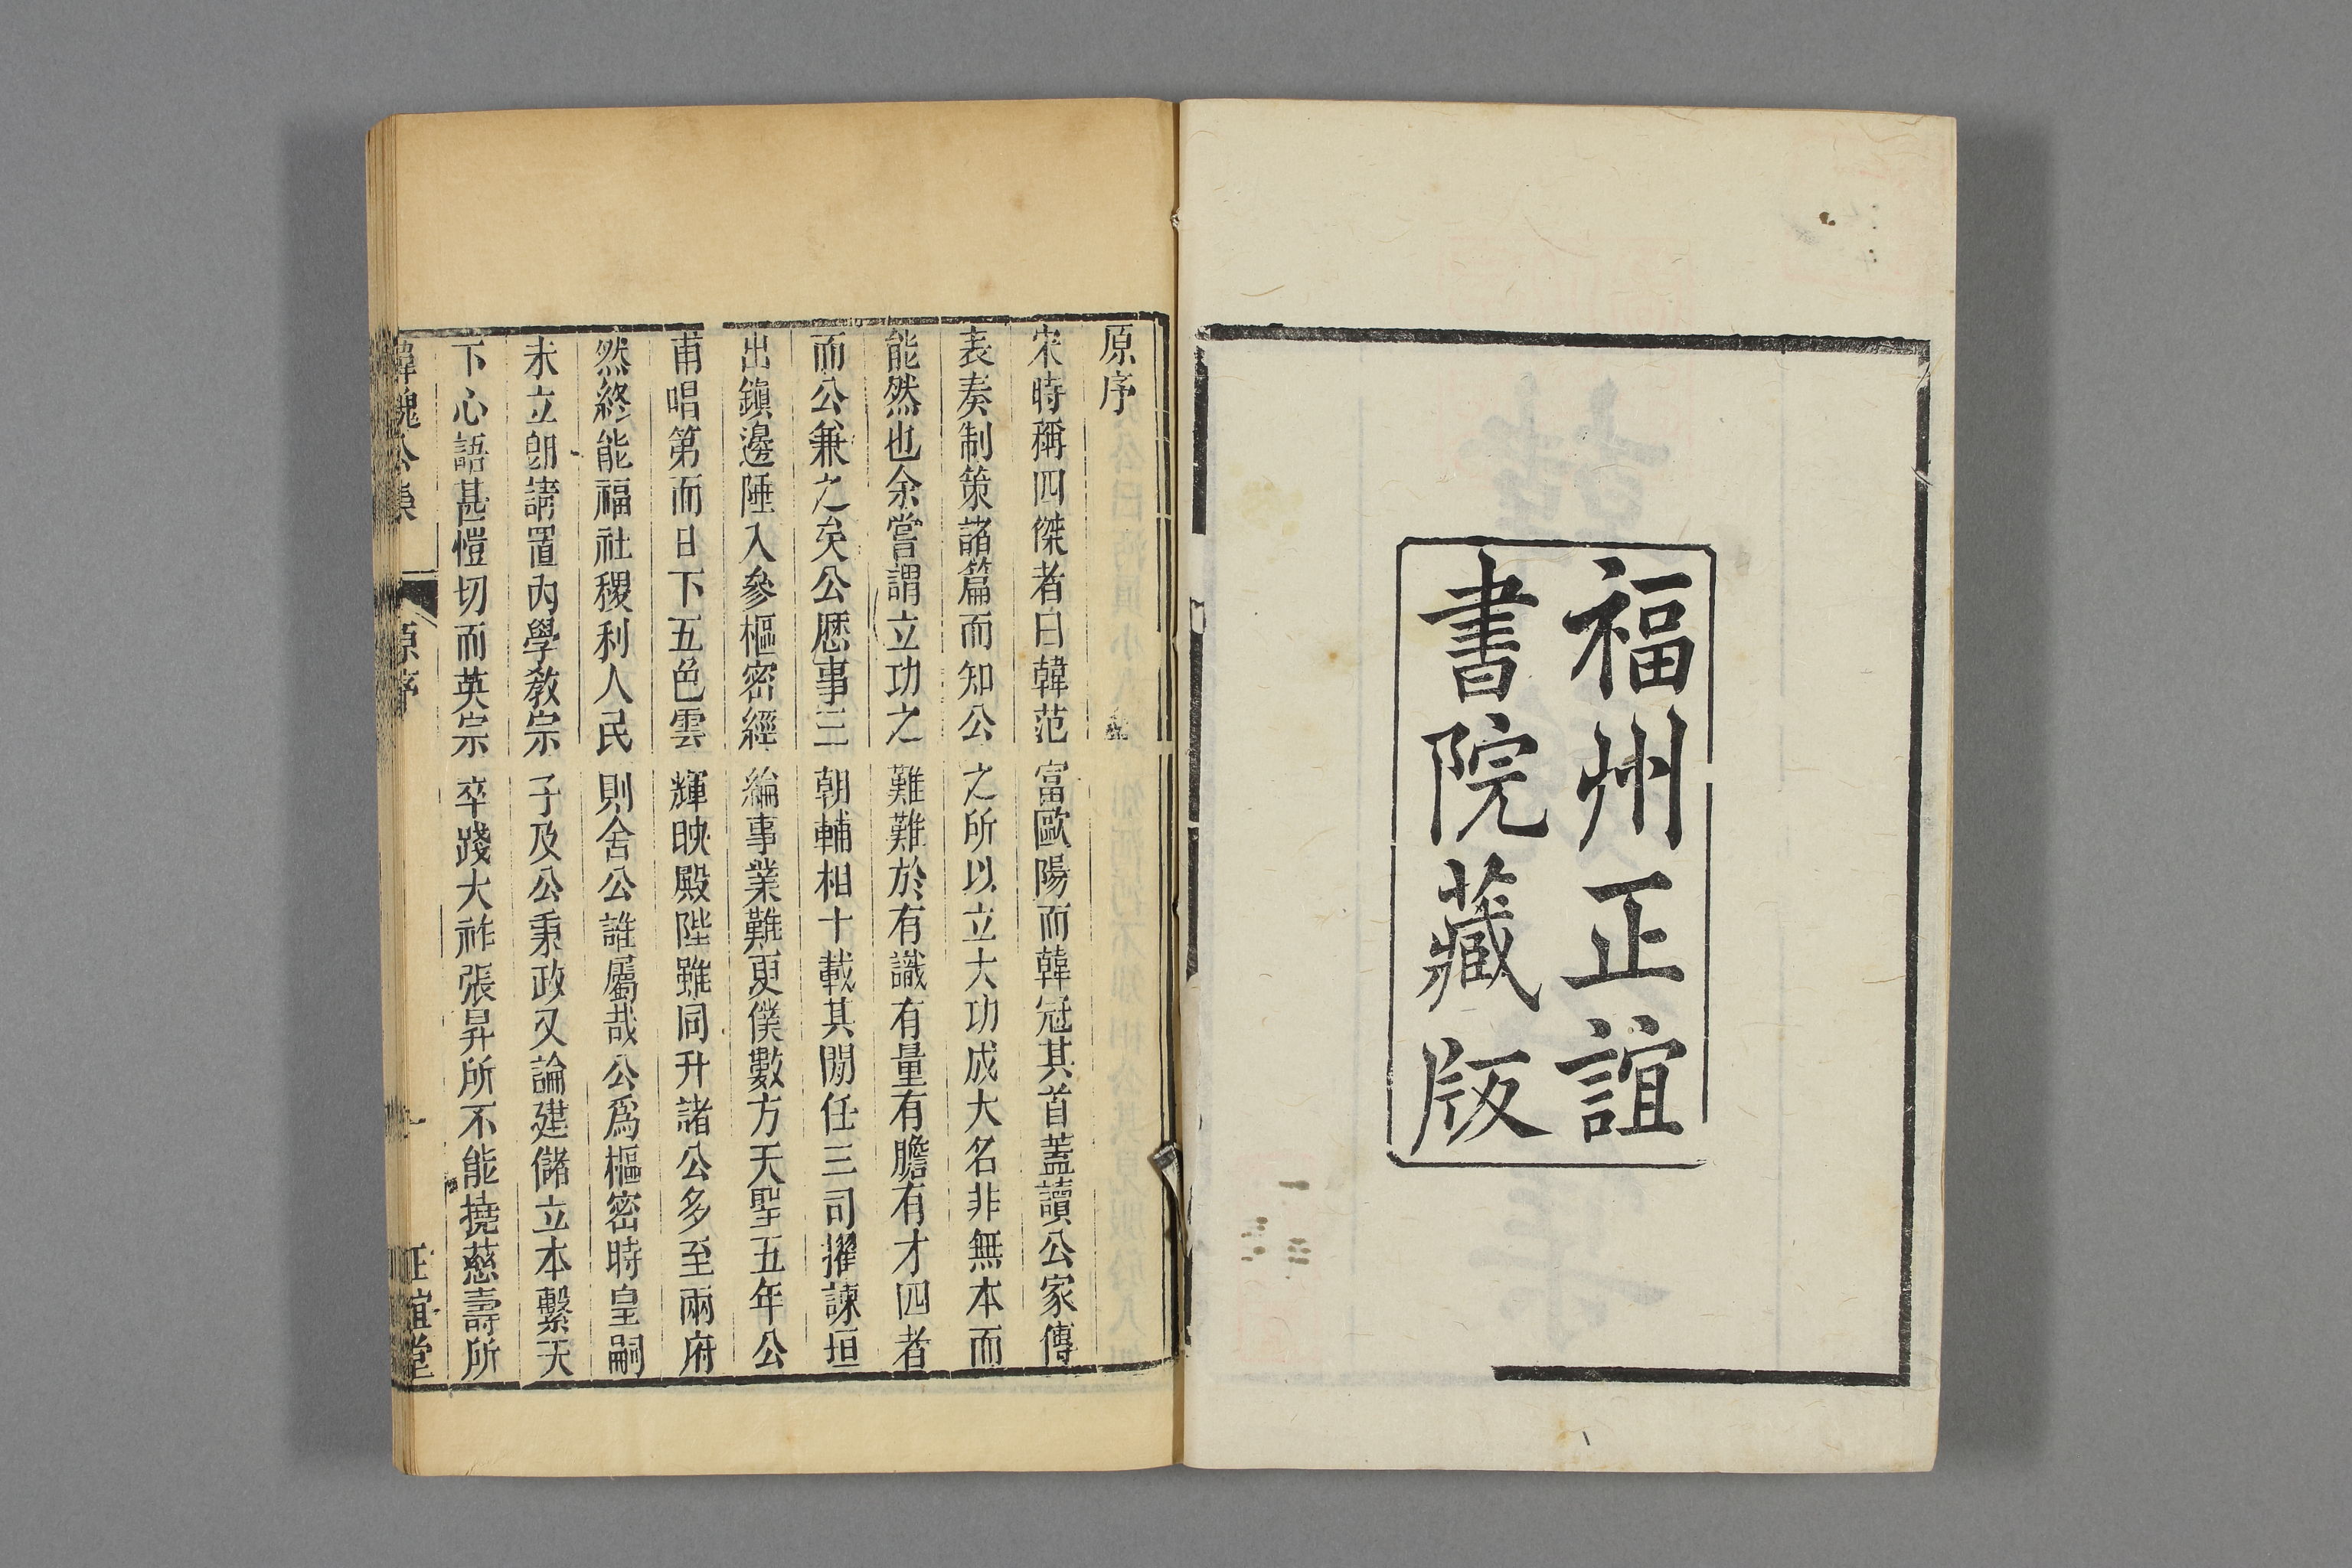 福州正誼
書院藏版
原序
宋時稱四傑者曰韓范富歐陽而韓冠其首蓋讀公家傳
表奏制策諸篇而知公之所以立大功成大名非無本而
能然也余嘗謂立功之難難於有識有量有膽有才四者
而公兼之矣公歴事三朝輔相十載其閒任三司擢諫垣
出鎮邊陲入參樞密經綸事業難更僕數方天聖五年公
甫唱第而日下五色雲輝映殿陛雖同升諸公多至兩府
然終能福社稷利人民則舍公誰屬哉公爲樞密時皇嗣
未立卽請置內學敎宗子及公秉政又論建儲立本繫天
下心語甚愷切而英宗卒踐大祚張昇所不能撓慈壽所
韓魏公集 原序 一 正誼堂